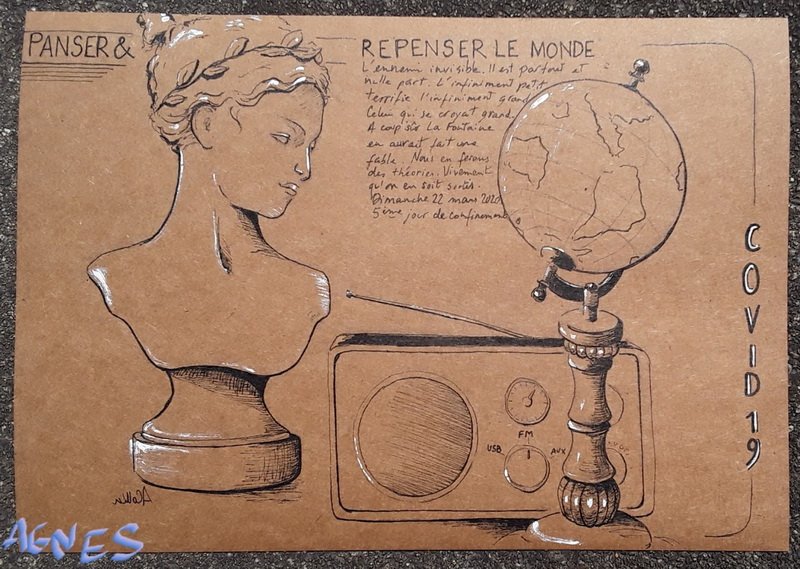 PANSER & REPENSER LE MONDE
L'ennemi invisible. Il est partout et
nulle part. L'infiniment petit
terrifie l'infiniment grand.
Celui qui se croyait grand.
A coup sûr La Fontaine
en aurait fait une
fable. Nous en ferons
des théories. Vivement
qu'on en soit sortis.
Dimanche 22 mars 2020
5ème jour de confinement
COVID 19
FM
USB
AUX
AGNES